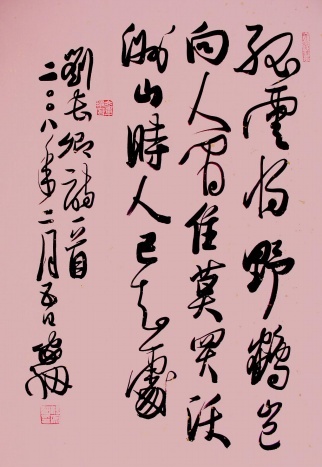 孤雲將野鶴豈
向人間住莫買沃
洲山時人已知處
劉長卿詩一首
二〇〇八年二月